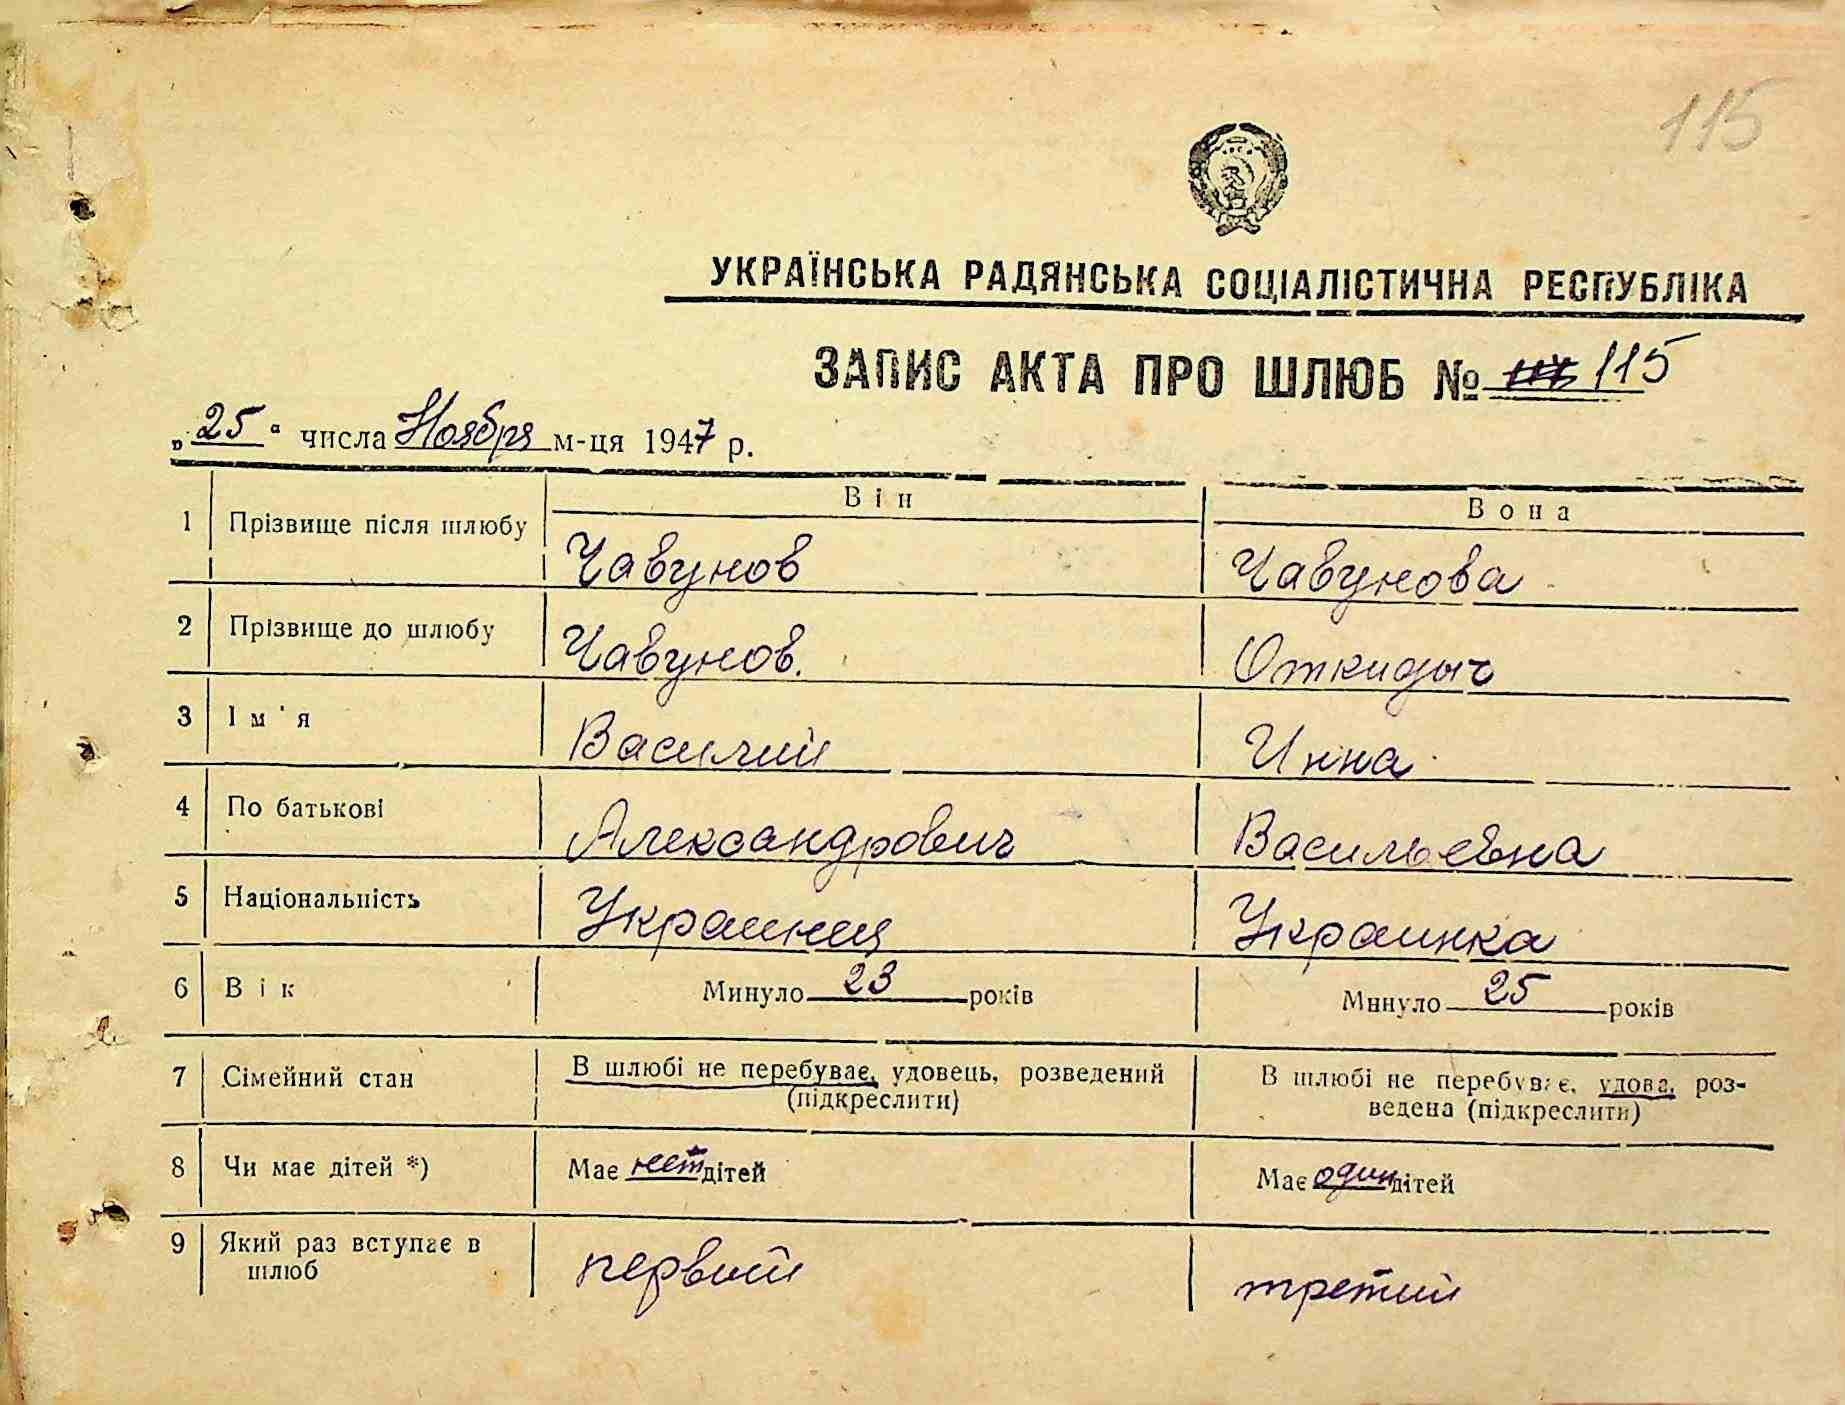 115
УКРАЇНСЬКА РАДЯНСЬКА СОЦІАЛІСТИЧНА РЕСПУБЛІКА
ЗАПИС АКТА ПРО ШЛЮБ № 115
„25“ числа Ноября м-ця 1947 р.
Він Вона
1 Прізвище після шлюбу Чавунов Чавунова
2 Прізвище до шлюбу Чавунов. Откидыч
3 Ім'я Василий Инна
4 По батькові Александрович Васильевна
5 Національність Украинец Украинка
6 Вік Минуло 23 років Минуло 25 років
7 Сімейний стан В шлюбі не перебуває, удовець, розведений (підкреслити) В шлюбі не перебуває, удова, роз-
ведена (підкреслити)
8 Чи має дітей *) Має нет дітей Має один дітей
9 Який раз вступає в шлюб первый третий